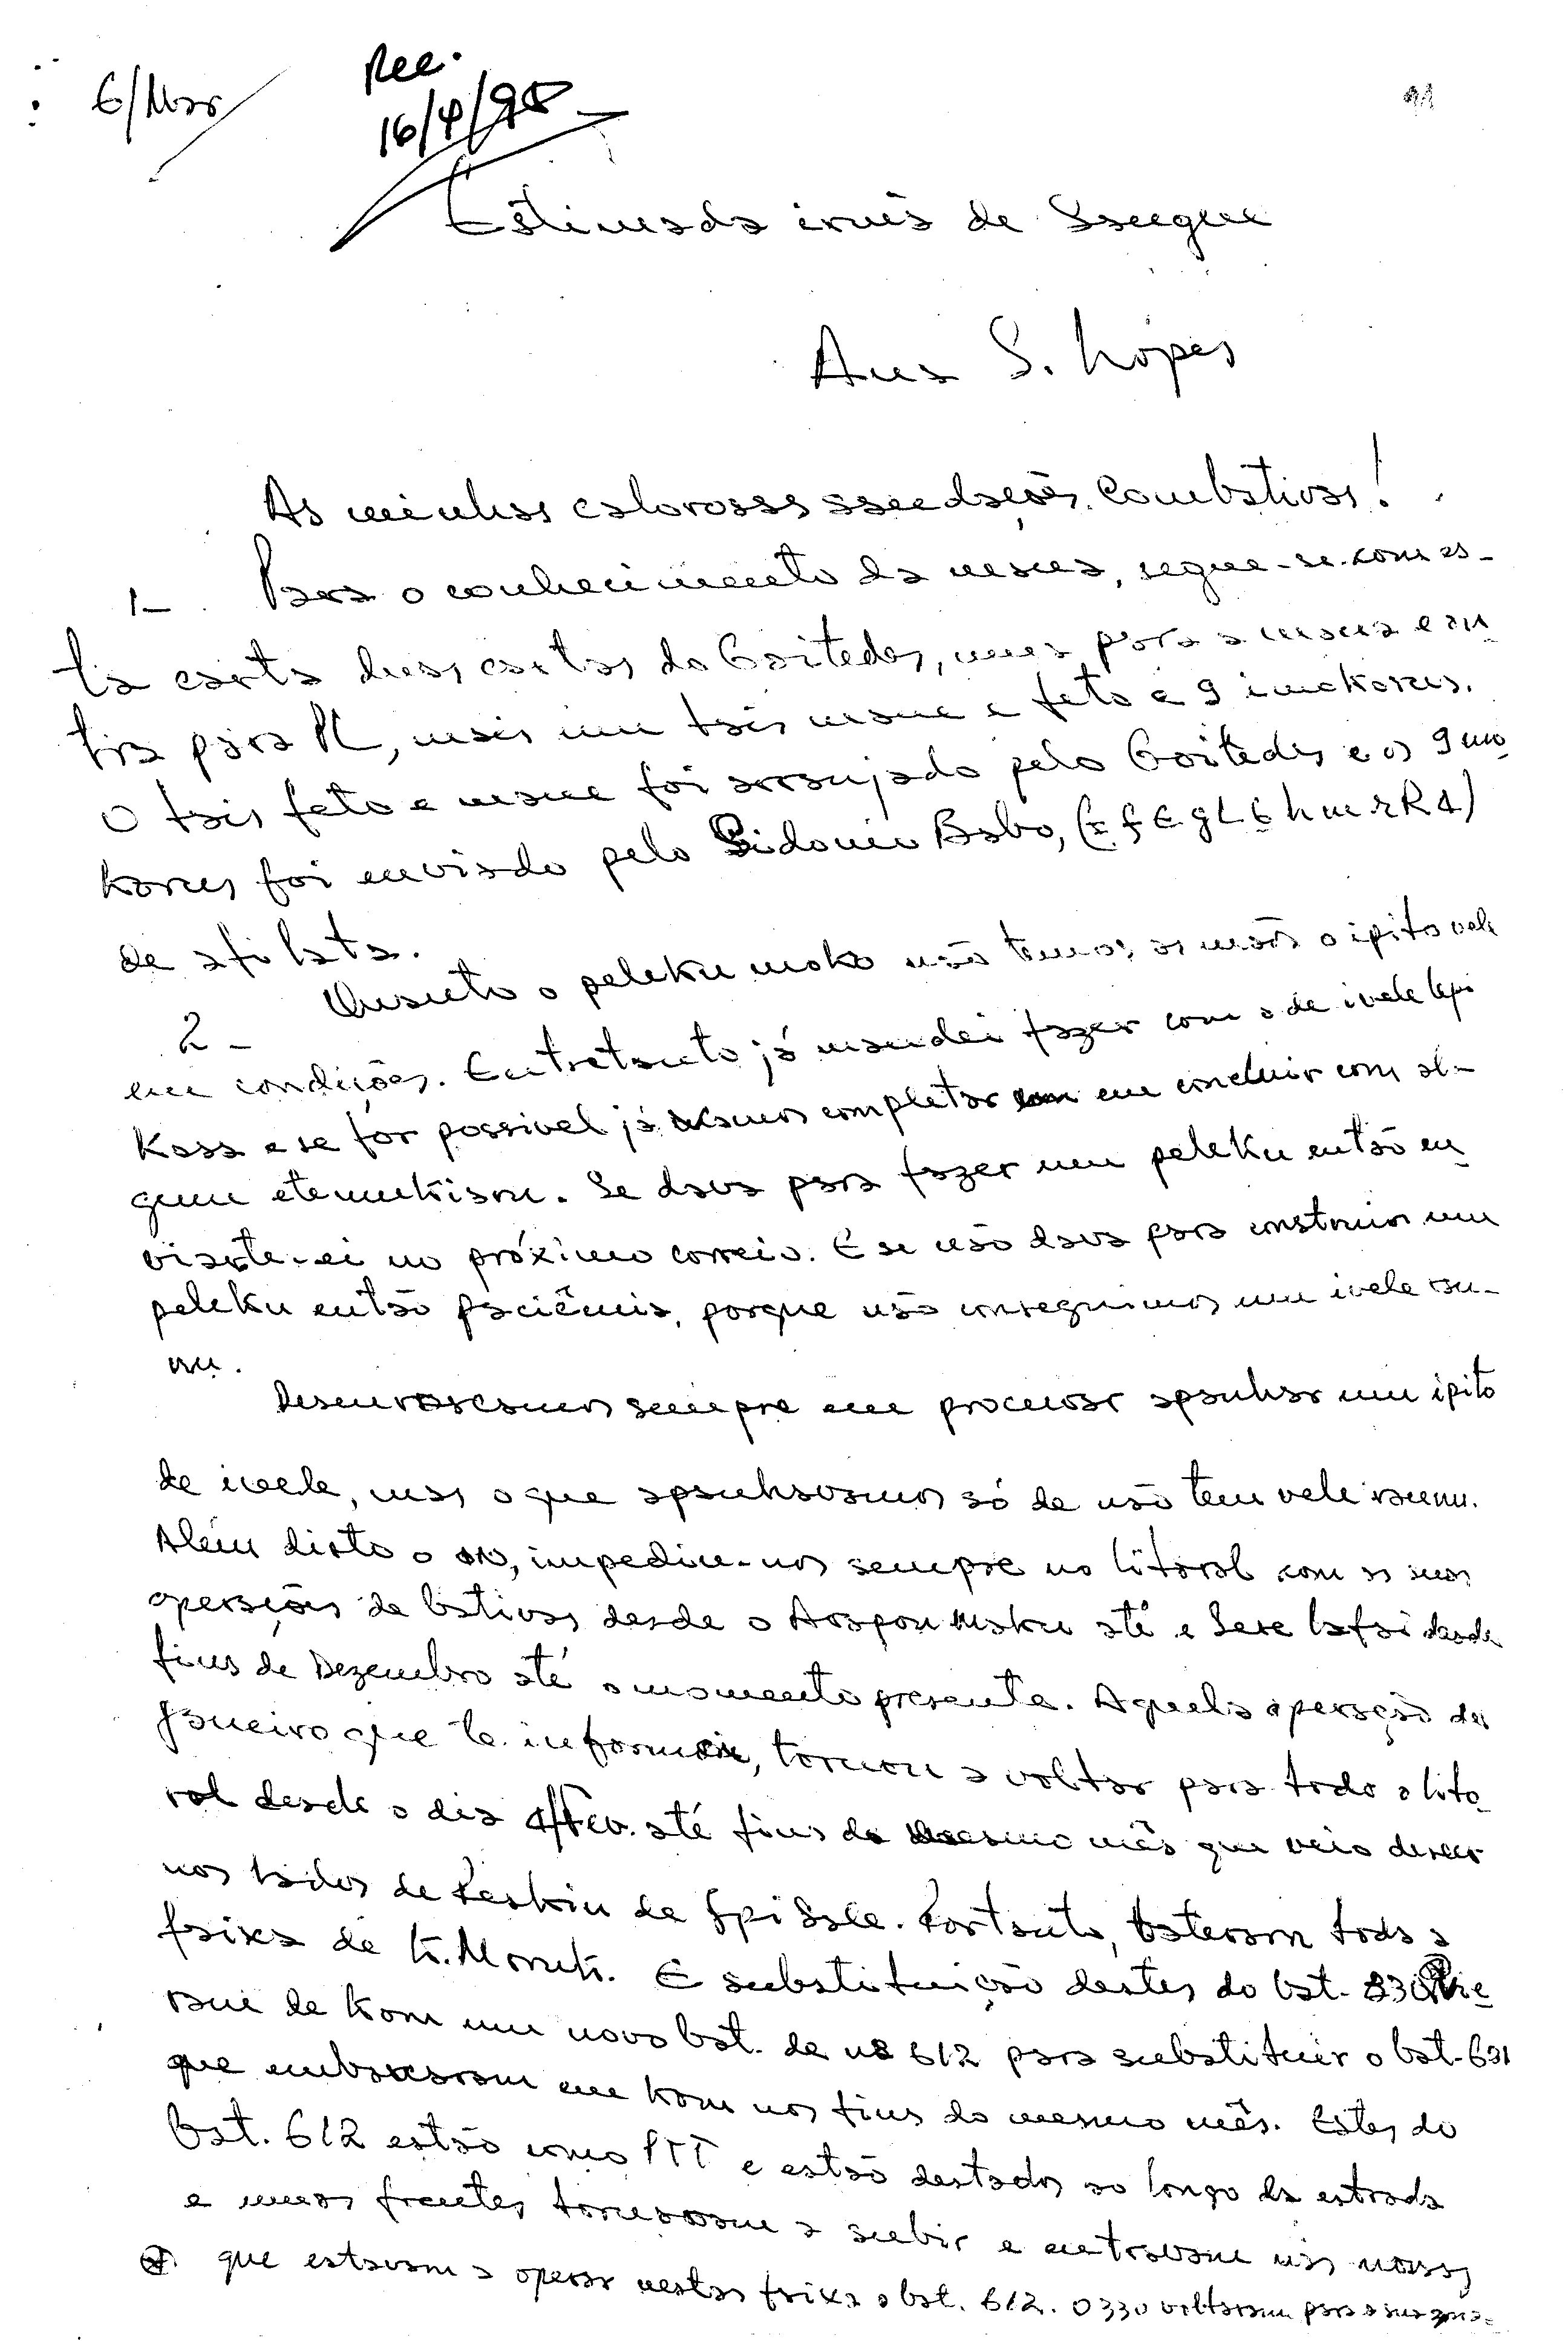 6/Mar
Rec.
16/4/98
91
Estimada irmã de Sangue
Ana S. Lopes
As minhas calorosas saudações Combativas!
1- Para o conhecimento da mana, segue-se com es-
ta carta duas cartas do Gaitedos, uma para a mana e ou
tra para PL, mais um tais mane e feto e 9 imokorus.
O tais feto e mane foi arranjado pelo Gaitedos e os 9 mo
korus foi enviado pelo Sidonio Babo,
de afilata.
2- Quanto o peleku moko não temos as mãos o ipito vele
em condições. Entretanto já mandei fazer com o de ivele lepi
kasa e se for possivel já vamos completar em concluir com al-
gum etemukisoru. Se dava para fazer um peleku então en
viarte-ei no próximo correio. E se não dava para construir um
peleku então paciência, porque não conseguimos um ivele rau-
nu.
Desenrascamos sempre em procurar apanhar um ipito
de ivele, mas o que apanhavamos só de não tem vele raunu.
Além disto o in, impediu-nos sempre no litoral com as suas
operações de bativas desde o Arapou Maku até e Sere lafai desde
fins de Dezembro até o momento presente. Aquela operação de
Janeiro que te informei, tornou a voltar para todo o lito
ral desde o dia 4/Fev. até fins do mesmo mês que veio descer
nos lados de de Ipi Sale. Portanto, bateram toda a
faixa de K. Moruk. E substituição destes do bat. 330
rani de Kom um novo bat. de nº 612 para substituir o bat. 631
que embarcaram em Kom nos fins do mesmo mês. Estes do
bat. 612 estão como PTT e estão destados ao longo da estrada
e numas frentes tornavam a subir e entravam nas nossas
que estavam a operar nestas faixa o bat. 612. O 330 voltaram para a sua